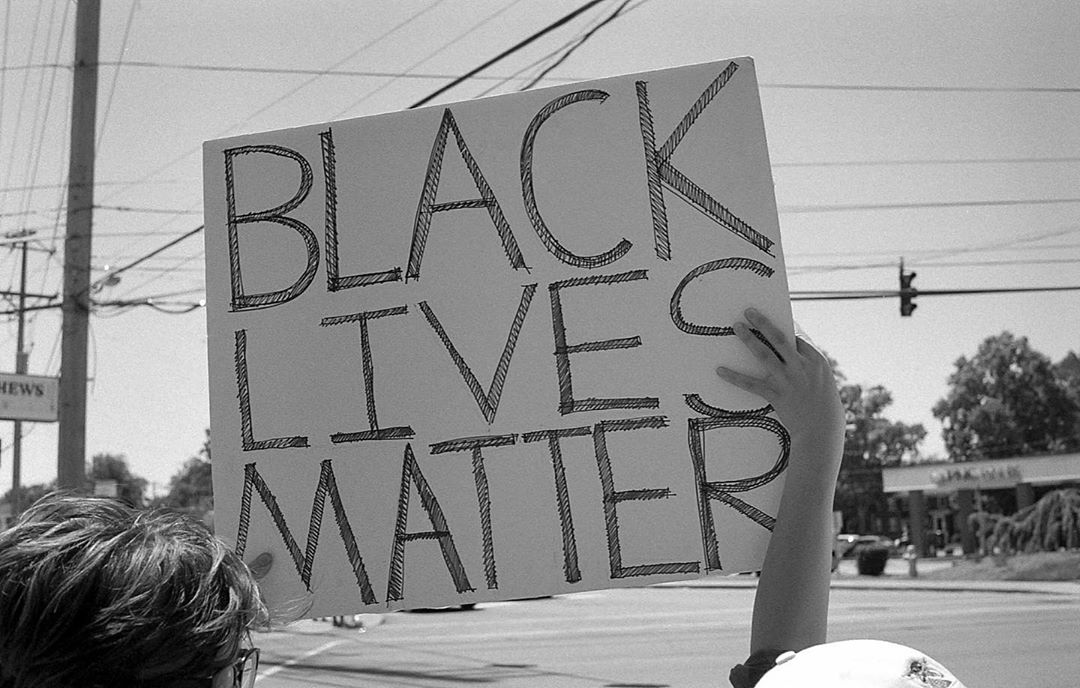 BLACK
LIVES
MATTER
HEWS